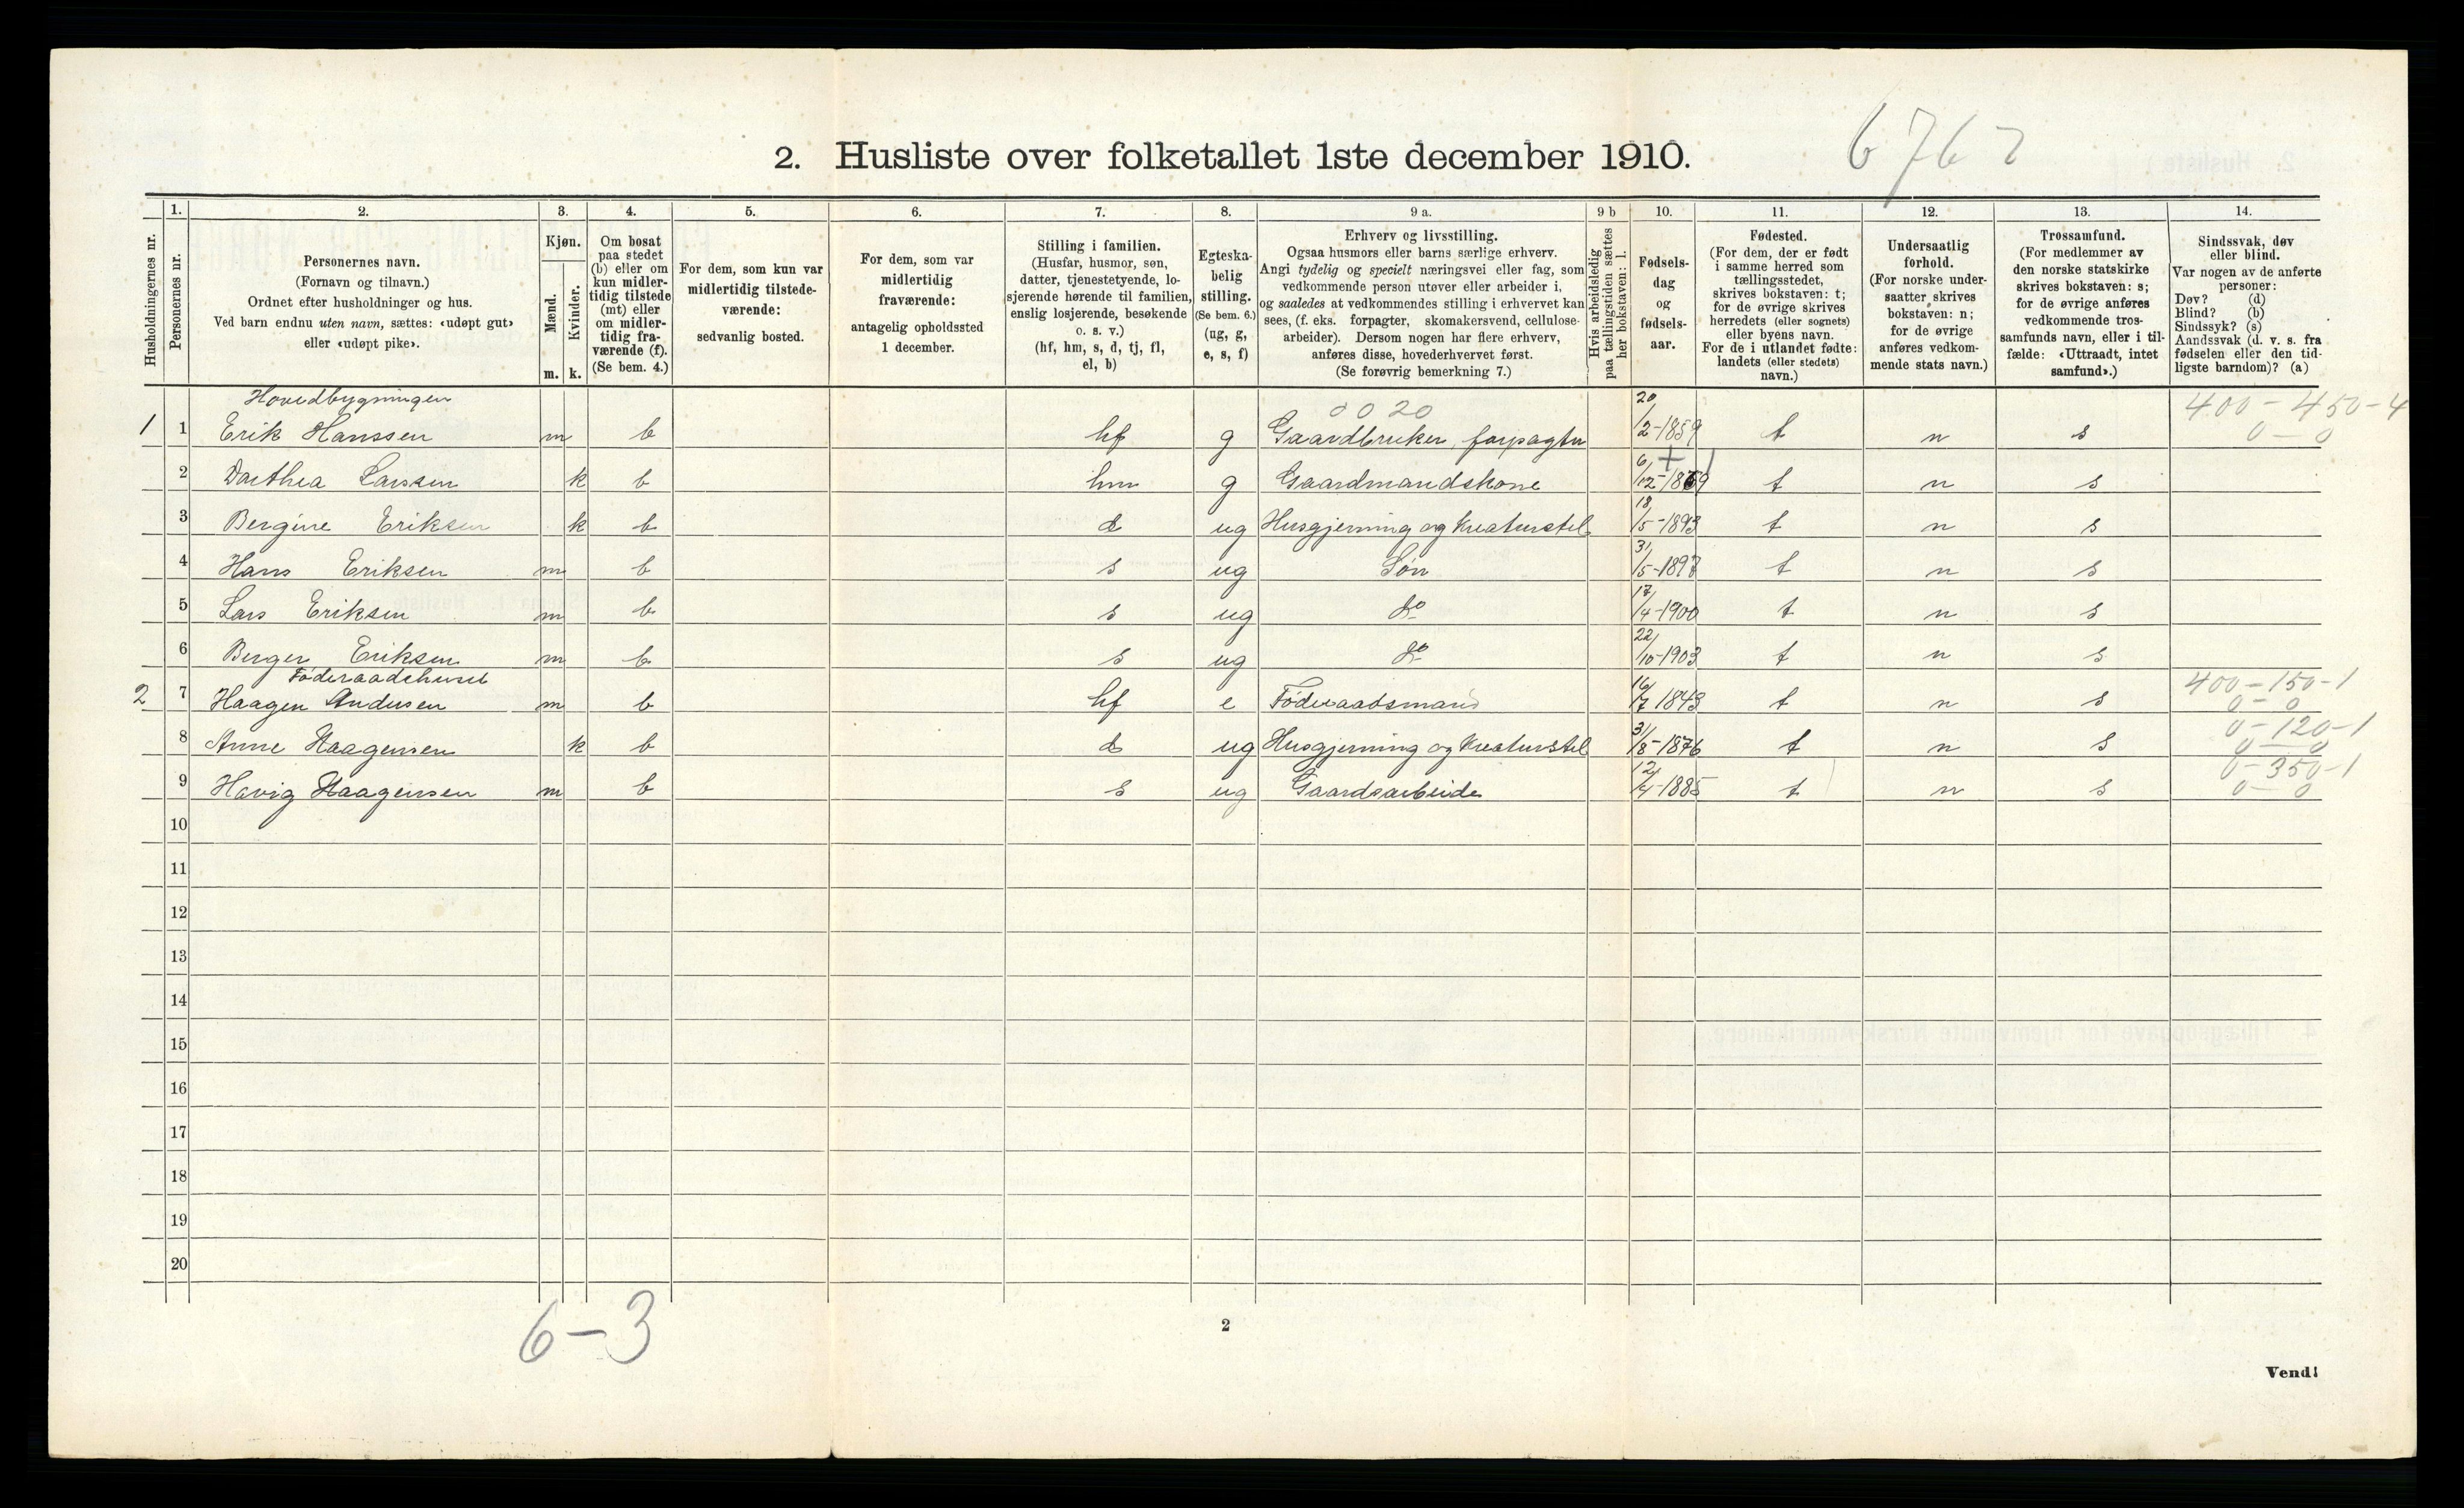 2. Husliste over folketallet 1ste december 1910.
6762
Husholdningernes nr.
1.
Personernes nr.
2.
Personernes navn.
(Fornavn og tilnavn.)
Ordnet efter husholdninger og hus.
Ved barn endnu uten navn, sættes: «udøpt gut»
eller «udøpt pike».
3.
Kjøn.
Mænd.
Kvinder.
m. k.
4.
Om bosat
paa stedet
(b) eller om
kun midler-
tidig tilstede
(mt) eller
om midler-
tidig fra-
værende (f).
(Se bem. 4.)
5.
For dem, som kun var
midlertidig tilstede-
værende:
sedvanlig bosted.
6.
For dem, som var
midlertidig
fraværende:
antagelig opholdssted
1 december.
7.
Stilling i familien.
(Husfar, husmor, søn,
datter, tjenestetyende, lo-
sjerende hørende til familien,
enslig losjerende, besøkende
o. s. v.)
(hf, hm, s, d, tj, fl,
el, b)
8.
Egteska-
belig
stilling.
(Se bem. 6.)
(ug, g,
e, s, f)
9 a.
Erhverv og livsstilling.
Ogsaa husmors eller barns særlige erhverv.
Angi tydelig og specielt næringsvei eller fag, som
vedkommende person utøver eller arbeider i,
og saaledes at vedkommendes stilling i erhvervet kan
sees, (f. eks. forpagter, skomakersvend, cellulose-
arbeider). Dersom nogen har flere erhverv,
anføres disse, hovederhvervet først.
(Se forøvrig bemerkning 7.)
9 b
Hvis arbeidsledig
paa tællingstiden sættes
her bokstaven: l.
10.
Fødsels-
dag
og
fødsels-
aar.
11.
Fødested.
(For dem, der er født
i samme herred som
tællingsstedet,
skrives bokstaven: t;
for de øvrige skrives
herredets (eller sognets)
eller byens navn.
For de i utlandet fødte:
landets (eller stedets)
navn.)
12.
Undersaatlig
forhold.
(For norske under-
saatter skrives
bokstaven: n;
for de øvrige
anføres vedkom-
mende stats navn.)
13.
Trossamfund.
(For medlemmer av
den norske statskirke
skrives bokstaven: s;
for de øvrige anføres
vedkommende tros-
samfunds navn, eller i til-
fælde: «Uttraadt, intet
samfund».)
14.
Sindssvak, døv
eller blind.
Var nogen av de anførte
personer:
Døv? (d)
Blind? (b)
Sindssyk? (s)
Aandssvak (d. v. s. fra
fødselen eller den tid-
ligste barndom)? (a)
Hovedbygningen 0020 400-450-4
1 1 Erik Hanssen m b hf g Gaardbruker, forpagter 20/2-1859 t n s 0-0
2 Dorthea Larssen k b hm g Gaardmandskone 6/12-1869 t n s
3 Bergine Eriksen k b d ug Husgjerning og Kreaturstel 18/5-1893 t n s
4 Hans Eriksen m b s ug Søn 31/5-1897 t n s
5 Lars Eriksen m b s ug Do 17/4-1900 t n s
6 Berger Eriksen m b s ug Do 22/10-1903 t n s
Føderaadshuset 400-150-1
2 7 Haagen Andersen m b hf e Føderaadsmand 16/7 1843 t n s 0-0
0-120-1
8 Anne Haagensen k b d ug Husgjerning og Kreaturstel 31/8-1876 t n s 0-0
0-350-1
9 Havig Haagensen m b s ug Gaardsarbeide 12/4-1885 t n s 0-0
10
11
12
13
14
15
16
17
18
19
20
6-3
2
Vend!